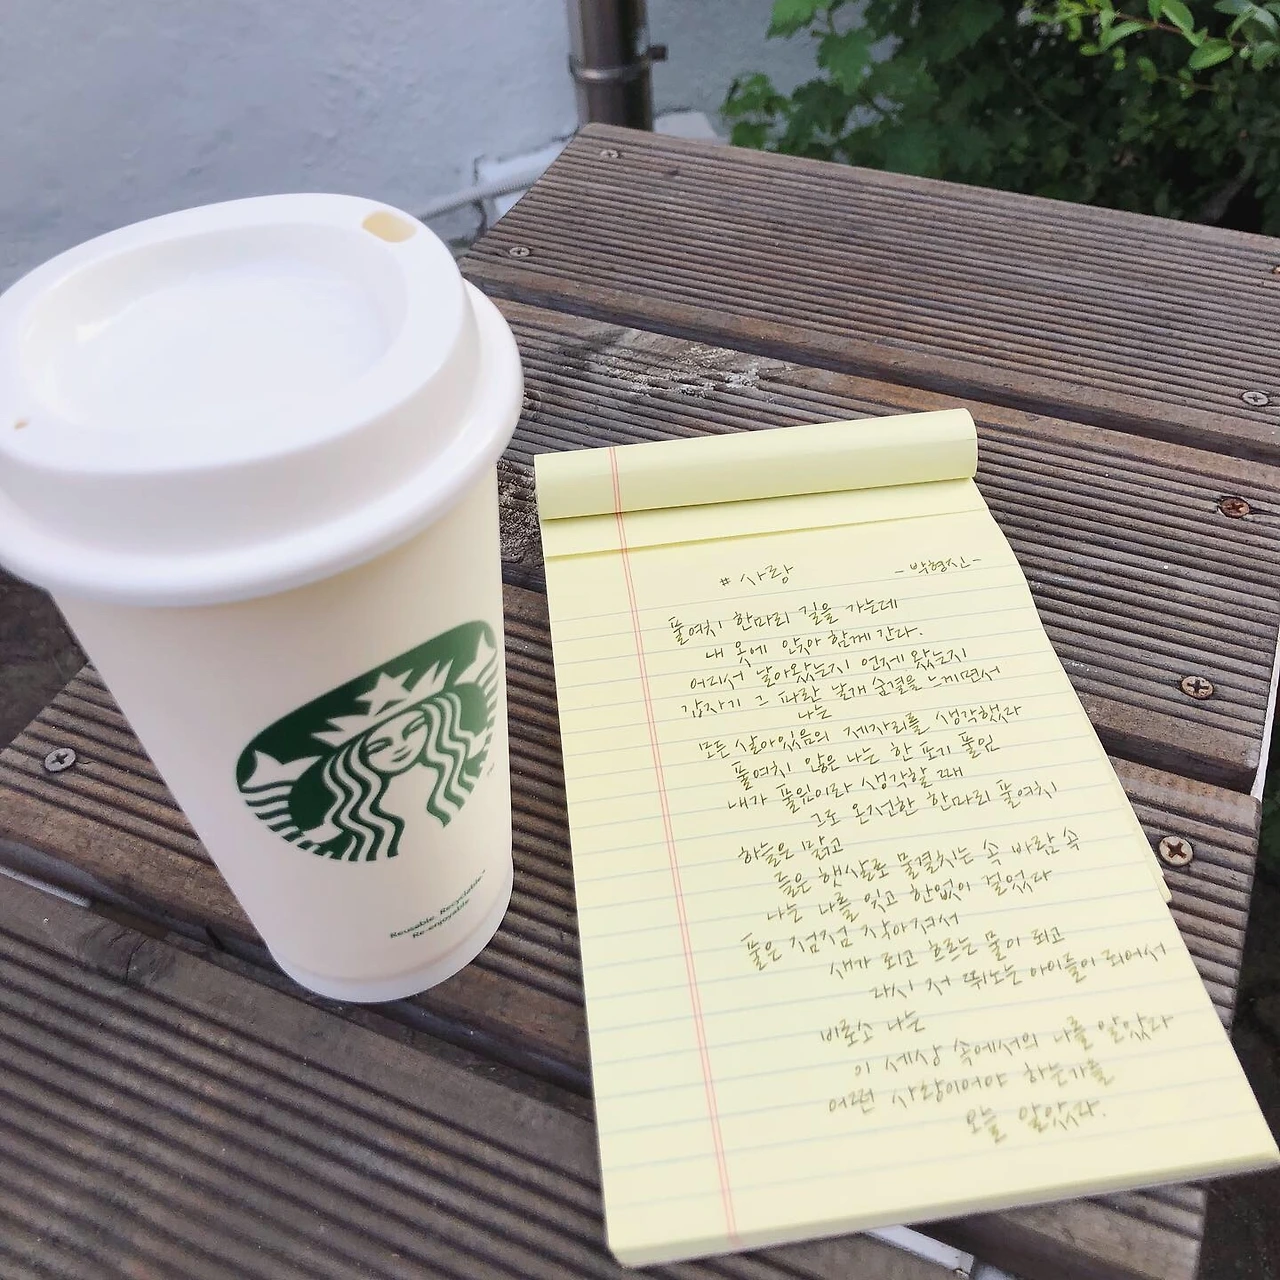 Reusable Recyclable
Re-enjoyable
# 사랑 -박형진-
풀여치 한마리 길을 가는데
내 옷에 앉아 함께 간다.
어디서 날아왔는지 언제 왔는지
갑자기 그 파란 날개 숨결을 느끼면서
나는
모든 살아있음의 제자리를 생각했다
풀여치 앉은 나는 한 포기 풀잎
내가 풀잎이라 생각할 때
그도 온전한 한마리 풀여치
하늘은 맑고
들은 햇살로 물결치는 속 바람 속
나는 나를 잊고 한없이 걸었다
풀은 점점 작아져서
새가 되고 흐르는 물이 되고
다시 저 뛰노는 아이들이 되어서
비로소 나는
이 세상 속에서의 나를 알았다
어떤 사랑이어야 하는가를
오늘 알았다.